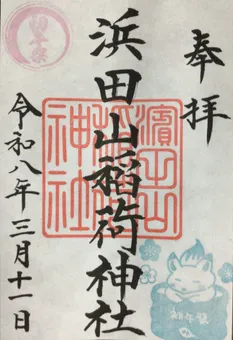 奉拝
浜田山稲荷神社
濱田山
稲荷
神社
令和八年三月十一日
初午祭